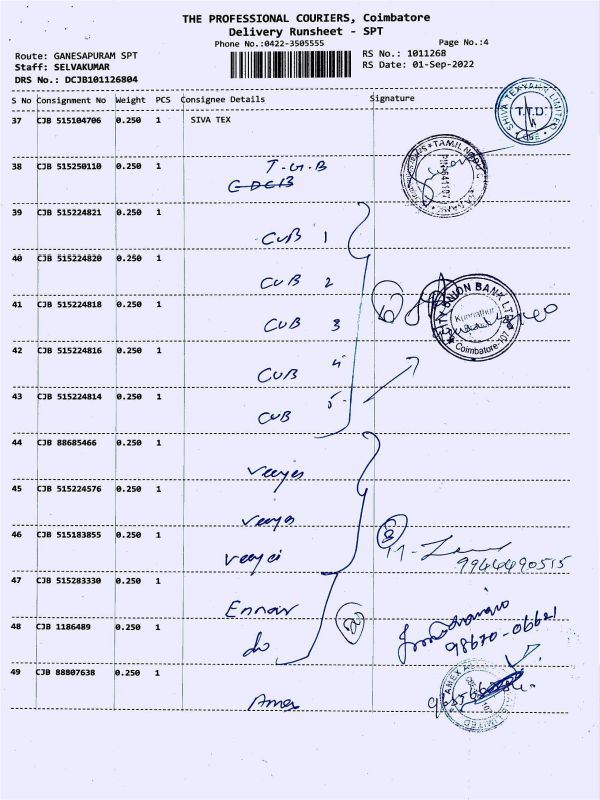 THE PROFESSIONAL COURIERS, Coimbatore
Delivery Runsheet - SPT
Phone No.:0422-3505555
Page No.:4
Route: GANESAPURAM SPT
RS No.: 1011268
Staff: SELVAKUMAR
RS Date: 01-Sep-2022
DRS No.: DCJB101126804
S No Consignment No Weight PCS Consignee Details Signature
37 CJB 515104706 0.250 1 SIVA TEX
38 CJB 515250110 0.250 1 T.G.B
39 CJB 515224821 0.250 1 CUB 1
40 CJB 515224820 0.250 1 CUB 2
41 CJB 515224818 0.250 1 CUB 3
42 CJB 515224816 0.250 1 CUB 4
43 CJB 515224814 0.250 1 CUB 5
CITY UNION BANK LTD
Kunnathur
Coimbatore-107
44 CJB 88685466 0.250 1
45 CJB 515224576 0.250 1
46 CJB 515183855 0.250 1
9944490515
47 CJB 515283330 0.250 1 Ennar
48 CJB 1186489 0.250 1 do
98670-06621
49 CJB 88807638 0.250 1 Amex